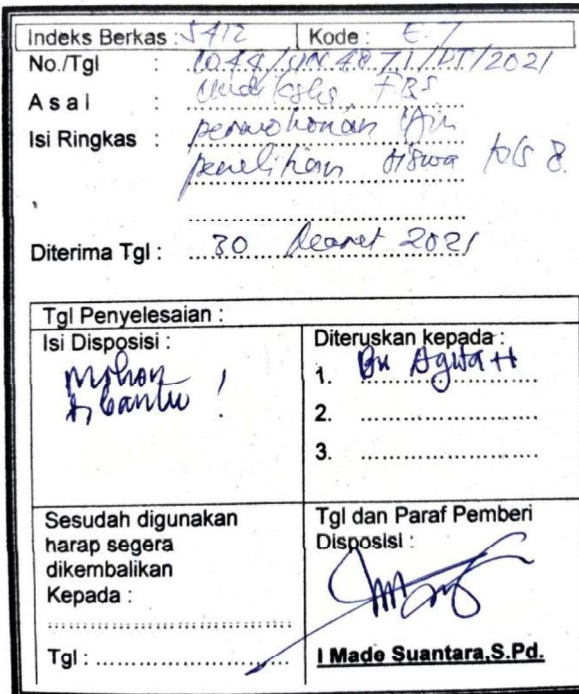 Indeks Berkas : 5412 Kode : E.7
No./Tgl : 1044/UN.48.7.1/DT/2021
Asal : Undiksha, FBS
Isi Ringkas : permohonan ijin
penelitian siswa kls 8.
Diterima Tgl : 30 Maret 2021
Tgl Penyelesaian :
Isi Disposisi :
Mohon
dibantu !
Diteruskan kepada :
1. Bu
2.
3.
Sesudah digunakan
harap segera
dikembalikan
Kepada :
Tgl :
Tgl dan Paraf Pemberi
Disposisi :
I Made Suantara,S.Pd.